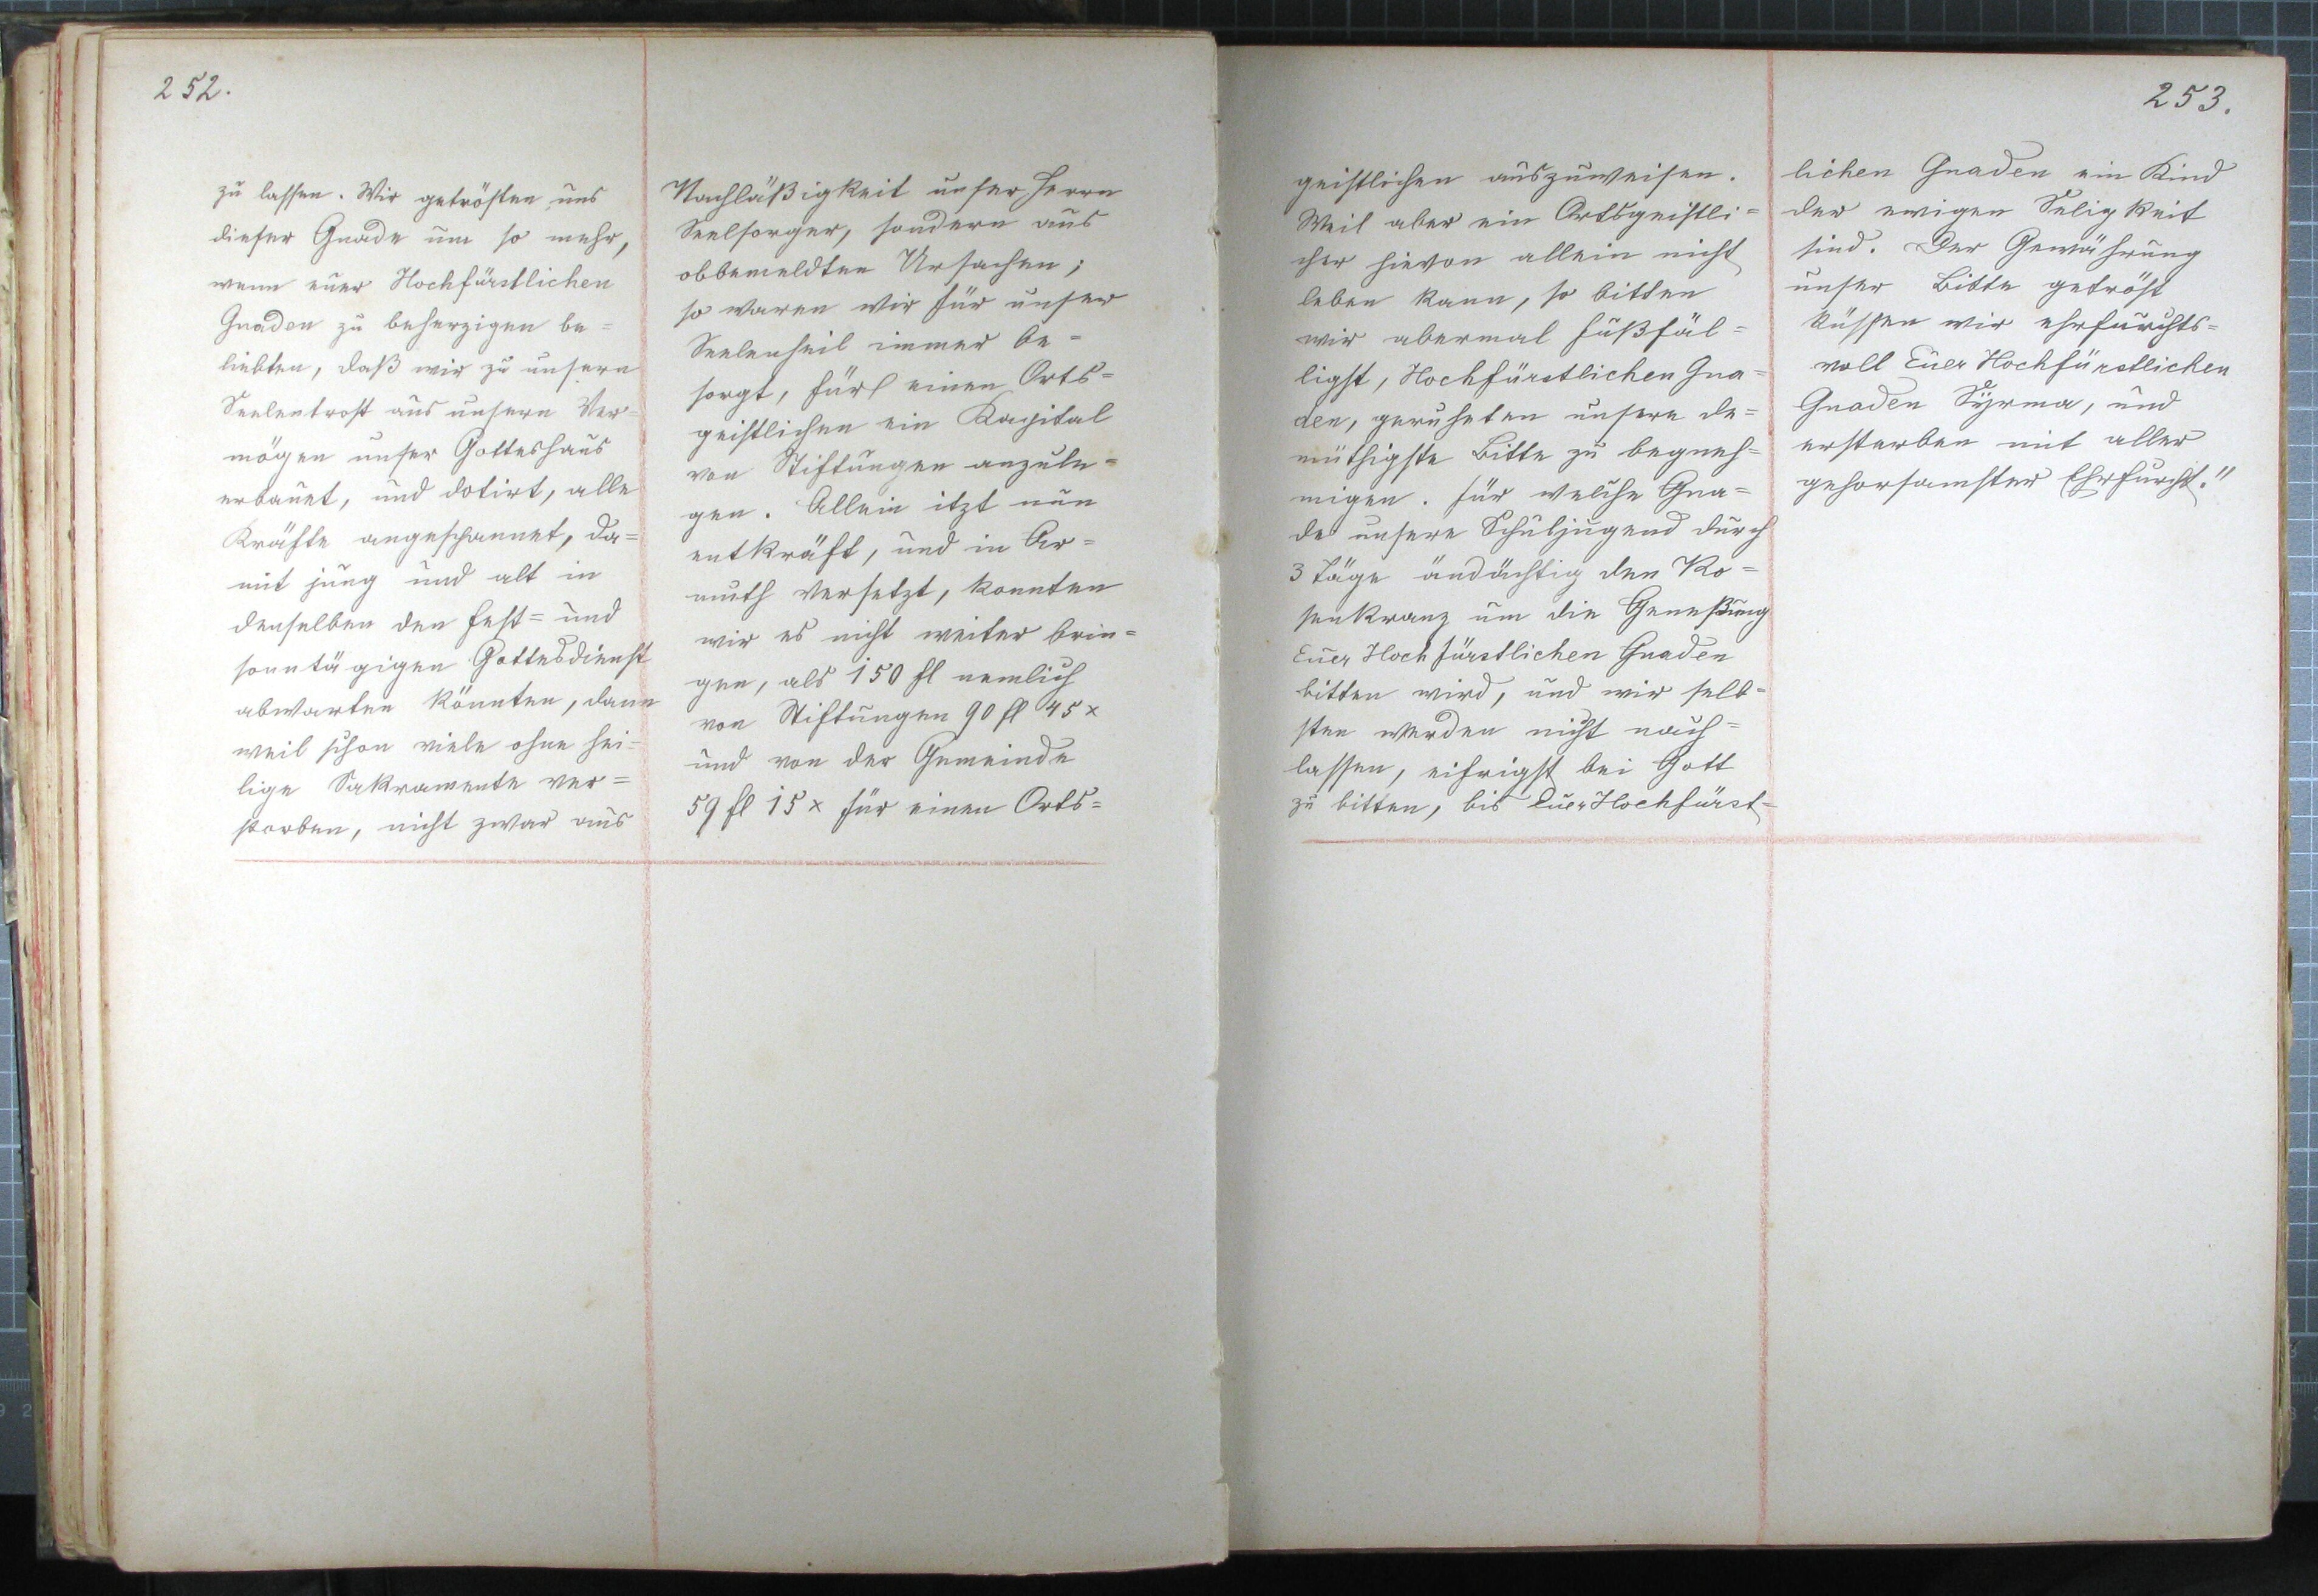 252.
zu lassen. Wir getrösten uns
dieser Gnade um so mehr,
wenn euer Hochfürstlichen
Gnaden zu beherzigen be=
liebten, daß wir zu unsern
Seelentrost aus unsern Ver=
mögen unser Gotteshaus
erbauet, und dotirt, alle
Kräfte angespannet, da=
mit jung und alt in
denselben den fest= und
sonntägigen Gottesdienst
abwarten könnten, dann
weil schon viele ohne hei=
lige Sakramente ver=
storben, nicht zwar aus
Nachläßigkeit unser Herrn
Seelsorger, sondern aus
obbemeldten Ursachen;
so waren wir für unser
Seelenheil immer be=
sorgt, für einen Orts=
geistlichen ein Kapital
von Stiftungen anzule=
gen. Allein itzt nun
entkräft, und in Ar=
muth versetzt, konnten
wir es nicht weiter brin=
gen, als 150 fl nemlich
von Stiftungen 90 fl 45 x
und von der Gemeinde
59 fl 15 x für einen Orts=
253.
geistlichen auszuweisen.
Weil aber ein Ortsgeistli=
cher hievon allein nicht
leben kann, so bitten
wir abermal fußfäl=
ligst, Hochfürstlichen Gna=
den, geruheten unsere de=
müthigste Bitte zu begneh=
migen. Für welche Gna=
de unsere Schuljugend durch
3 Täge andächtig den Ro=
senkranz um die Geneßung
Euer Hochfürstlichen Gnaden
bitten wird, und wir selb=
sten werden nicht nach=
lassen, eifrigst bei Gott
zu bitten, bis Euer Hochfürst=
lichen Gnaden ein Kind
der ewigen Seligkeit
sind. Der Gewährung
unser Bitte getröst
küssen wir ehrfurchts=
voll Euer Hochfürstlichen
Gnaden Syrma, und
ersterben mit aller
gehorsamster Ehrfurcht."